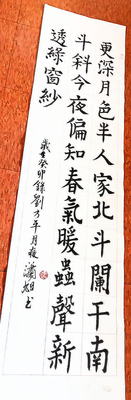 更深月色半人家北斗闌干南
斗斜今夜偏知春氣暖蟲聲新
透綠窗紗
歲在癸卯錄劉方平月夜瀟旭书